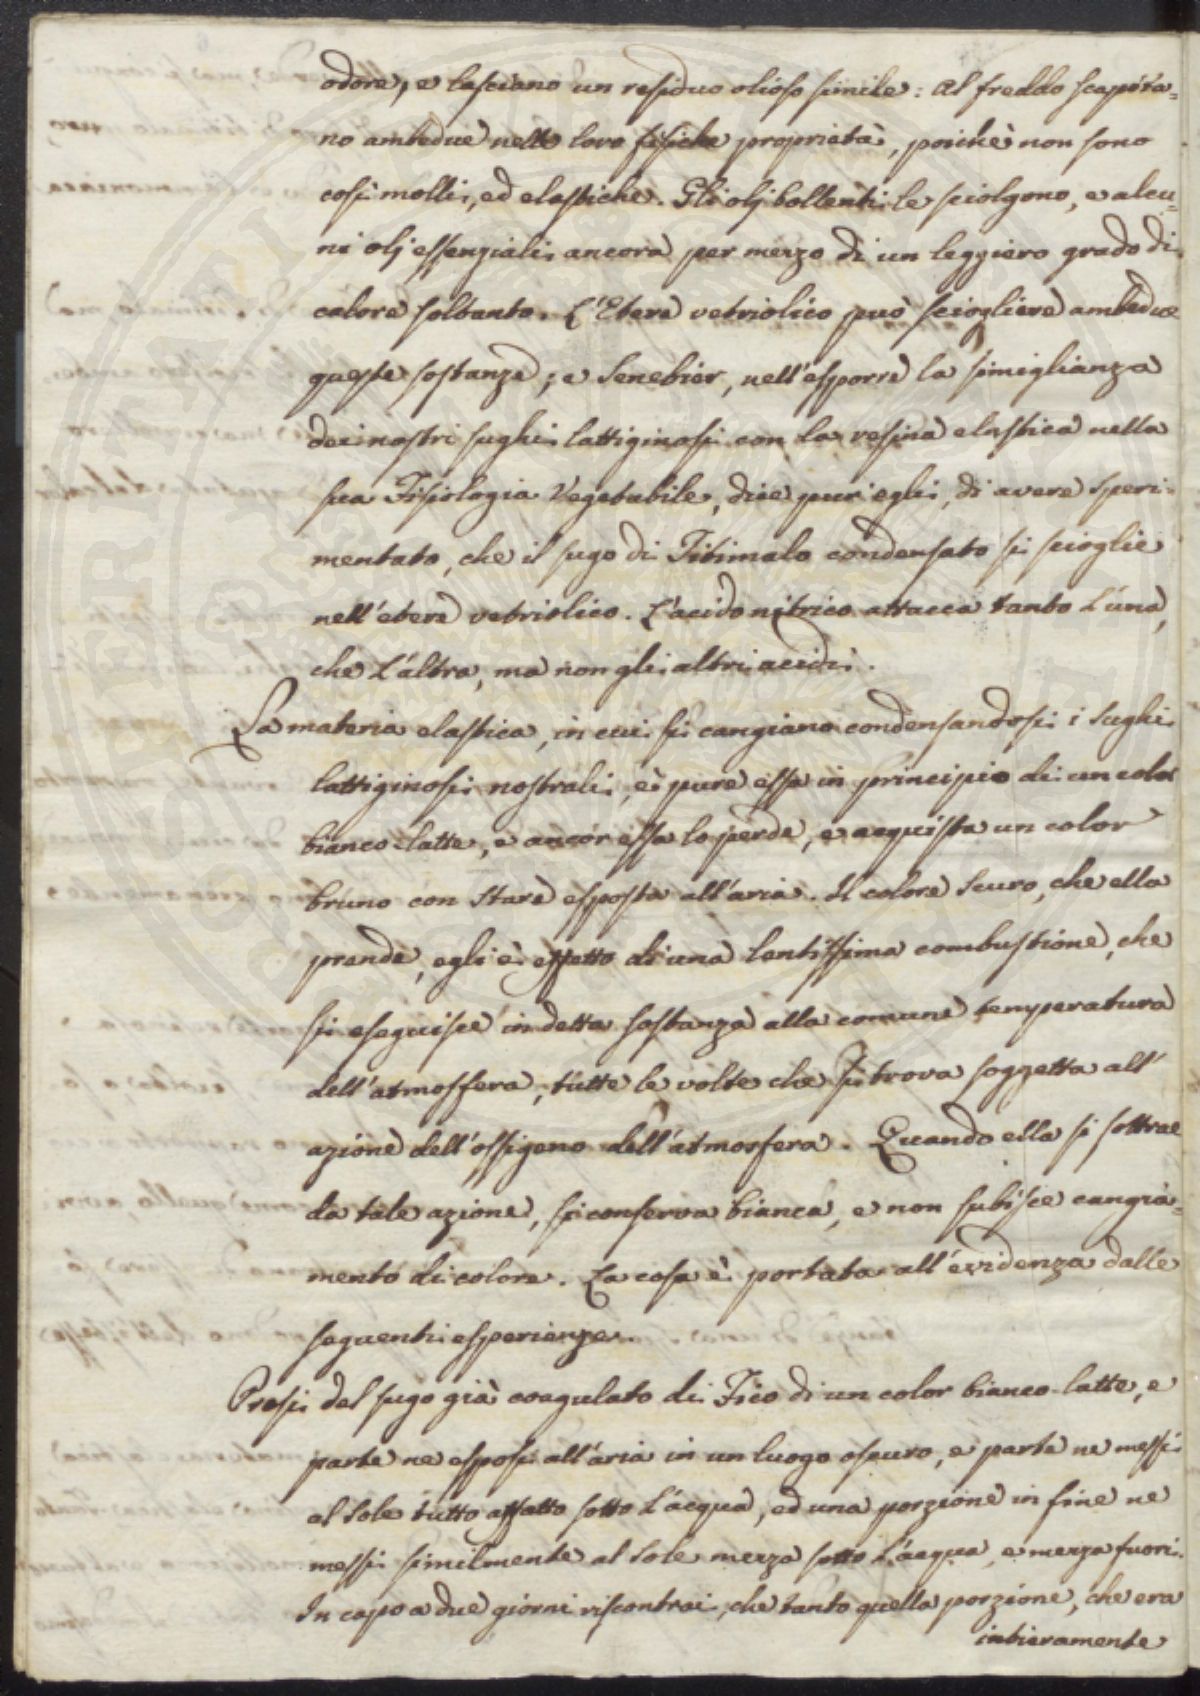 odore, e lasciano un residuo olioso simile: al freddo scapita=
no ambedue nelle loro fisiche proprietà, poichè non sono
così molli, ed elastiche. Gli olj bollenti le sciolgono, e alcu=
ni olj essenziali ancora per mezzo di un leggiero grado di
calore soltanto. L'Etere vetriolico può sciogliere ambedue
queste sostanze; e Senebier, nell'esporre la simiglianza
dei nostri sughi lattiginosi con la resina elastica nella
sua Fisiologia Vegetabile, dice pur'egli, di avere speri=
mentato, che il sugo di Titimalo condensato si scioglie
nell'etere vetriolico. L'acido nitrico attacca tanto l'una,
che l'altra, ma non gli altri acidi.
La materia elastica, in cui si cangiano condensandosi i sughi
lattiginosi nostrali, è pure essa in principio di un color
bianco-latte, e ancor essa lo perde, e acquista un color
bruno con stare esposta all'aria. Il colore scuro, che ella
prende, egli è effetto di una lentissima combustione, che
si eseguisce in detta sostanza alla comune temperatura
dell'atmosfera, tutte le volte che si trova soggetta all'
azione dell'ossigeno dell'atmosfera. Quando ella si sottrae
da tale azione, si conserva bianca, e non subisce cangia=
mento di colore. La cosa è portata all'evidenza dalle
seguenti esperienze.
Presi del sugo già coagulato di Fico di un color bianco-latte, e
parte ne esposi all'aria in un luogo oscuro, e parte ne messi
al Sole tutto affatto sotto l'acqua, ed una porzione in fine ne
messi similmente al Sole mezza sotto l'acqua, e mezza fuori.
In capo a due giorni riscontrai, che tanto quella porzione, che era
intieramente